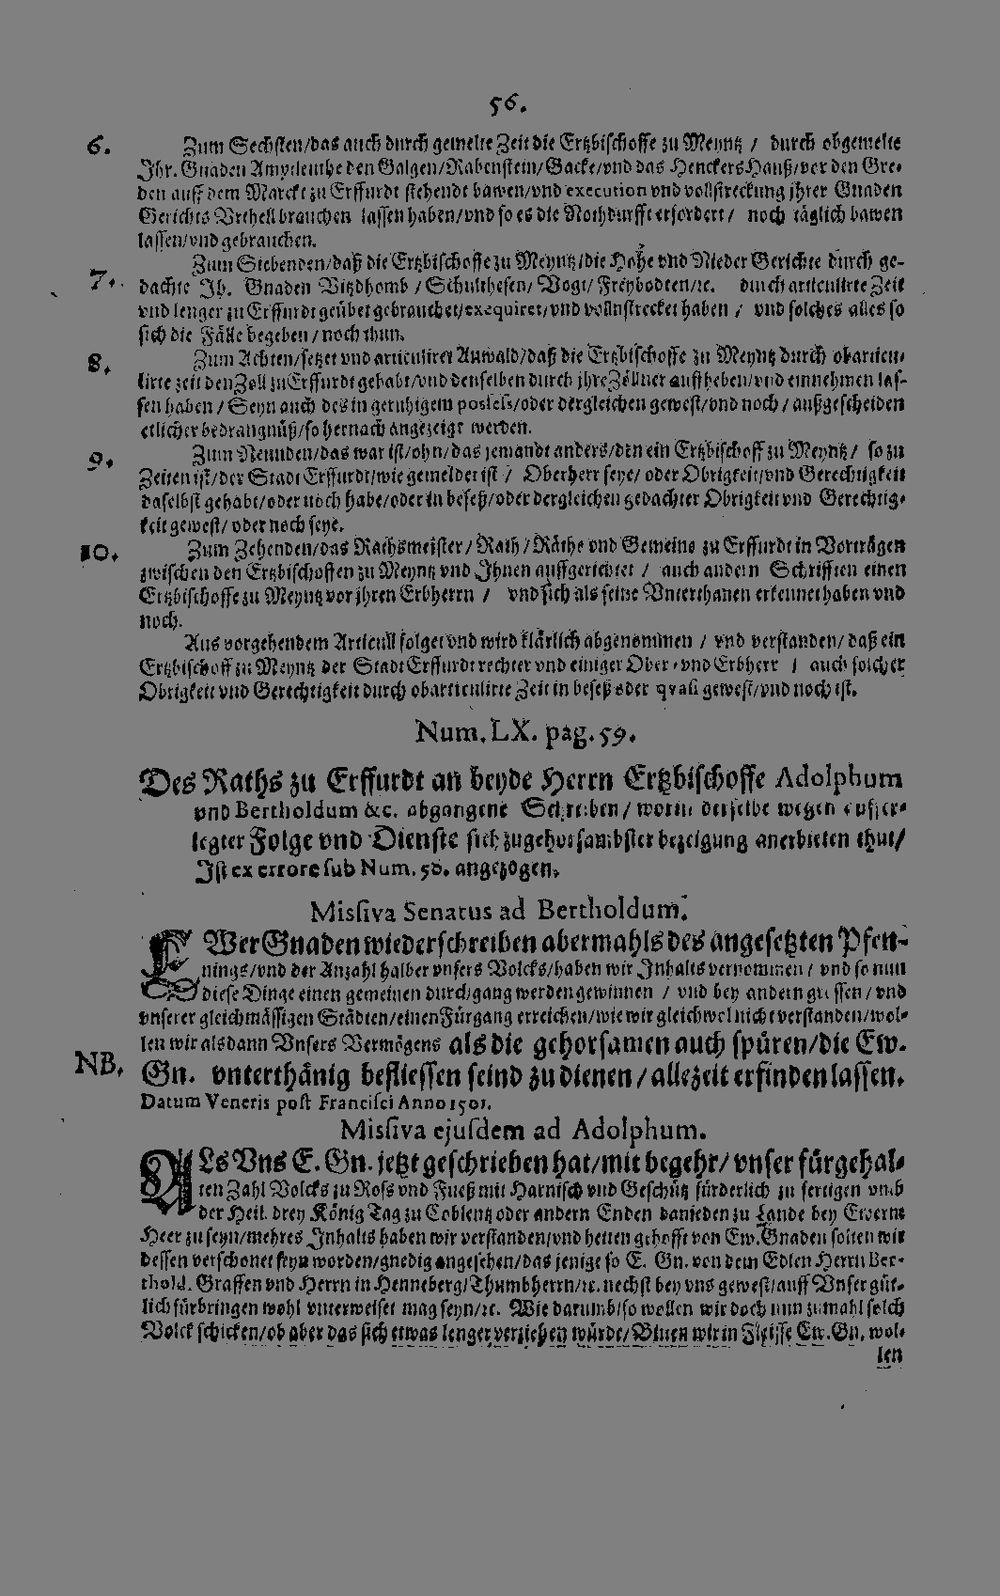 56.
6. Zum Sechsten/das auch durch gemelte Zeit die Ertzbischoffe zu Meyntz / durch obgemelte
Jhr. Gnaden Amptleuthe den Galgen/Rabenstein/Gacke/vnd das Henckers Hauß/vor den Gre-
den auff dem Marckt zu Erffurdt stehendt bawen/vnd execution vnd vollstreckung jhrer Gnaden
Gerichts Vrtheil brauchen lassen haben/vnd so es die Nothdurfft erfordert / noch täglich bawen
lassen/vnd gebrauchen.
7. Zum Siebenden/daß die Ertzbischoffe zu Meyntz/die Hohe vnd Nieder Gerichte durch ge-
dachte Jh. Gnaden Vitzdhomb / Schulthesen/ Vogt/ Freybodten/rc. durch articulirte Zeit
vnd lenger zu Erffurdt geübet gebrauchet/exequiret/vnd vollnstrecket haben / vnd solches alles so
sich die Fälle begeben / noch thun.
8. Zum Achten/setzet vnd articuliret Anwald/daß die Ertzbischoffe zu Meyntz durch obarticu-
lirte zeit den Zoll zu Erffurdt gehabt/vnd denselben durch jhre Zöllner auffheben/vnd einnehmen las-
sen haben / Seyn auch des in geruhigem possess/oder dergleichen gewest/vnd noch / außgescheiden
etlicher bedrangnüß/so hernach angezeigt werden.
9. Zum Neunden/das war ist/ohn/das jemandt anders/den ein Ertzbischoff zu Meyntz/ so zu
Zeiten ist/der Stadt Erffurdt/wie gemeldet ist / Oberherr seye/ oder Obrigkeit/vnd Gerechtigkeit
daselbst gehabt/oder noch habe/oder in beseß/oder dergleichen gedachter Obrigkeit vnd Gerechtig-
keit gewest/ oder noch seye.
10. Zum Zehenden/das Rathsmeister/ Rath / Räthe vnd Gemeine zu Erffurdt in Vorträgen
zwischen den Ertzbischoffen zu Meyntz vnd Jhnen auffgerichtet / auch andern Schrifften einen
Ertzbischoffe zu Meyntz vor jhren Erbherrn / vnd sich als seine Vnterthanen erkennet haben vnd
noch.
Aus vorgehendem Articull folget vnd wird klärlich abgenommen / vnd verstanden/ daß ein
Ertzbischoff zu Meyntz der Stadt Erffurdt rechter vnd einiger Ober-vnd Erbherr / auch solcher
Obrigkeit vnd Gerechtigkeit durch obarticulirte Zeit in beseß oder quasi gewest/vnd noch ist.
Num. LX. pag. 59.
Des Raths zu Erffurdt an beyde Herrn Ertzbischoffe Adolphum
vnd Bertholdum &c. abgangene Schreiben / worin derselbe wegen aufser-
legter Folge vnd Dienste sich zugehorsambster bezeigung anerbieten thut/
Jst ex errore sub Num. 58. angezogen.
Missiva Senatus ad Bertholdum.
EWer Gnaden wiederschreiben abermahls des angesetzten Pfen-
nings/vnd der Anzahl halber vnsers Volcks/haben wir Jnhalts vernommen / vnd so nun
diese Dinge einen gemeinen durchgang werden gewinnen / vnd bey andern grossen / vnd
vnserer gleichmässigen Städten/einen Fürgang erreichen/wie wir gleichwol nicht verstanden/wol-
len wir alsdann Vnsers Vermögens als die gehorsamen auch spüren/die Ew.
NB. Gn. vnterthänig beflissen seind zu dienen / allezeit erfinden lassen.
Datum Veneris post Francisci Anno 1501.
Missiva ejusdem ad Adolphum.
ALs Vns E. Gn. jetzt geschrieben hat/mit begehr/ vnser fürgehal-
ten Zahl Volcks zu Ross vnd Fueß mit Harnisch vnd Geschütz fürderlich zu fertigen vmb
der Heil. drey König Tag zu Coblentz oder andern Enden danieden zu Lande bey Ewerm
Heer zu seyn/mehres Jnhalts haben wir verstanden/vnd hetten gehofft von Ew. Gnaden solten wir
dessen verschonet seyn worden/gnedig angesehen/das jenige so E. Gn. von dem Edlen Herrn Ber-
thold. Graffen vnd Herrn in Henneberg/Thumbherrn/rc. nechst bey vns gewest/auff Vnser güt-
lich fürbringen wohl vnterweiset mag seyn/rc. Wie darumb/so wollen wir doch nun zumahl solch
Volck schicken/ob aber das sich etwas lenger verziehen würde/Bitten wir in Fleisse Ew. Gn. wol-
len